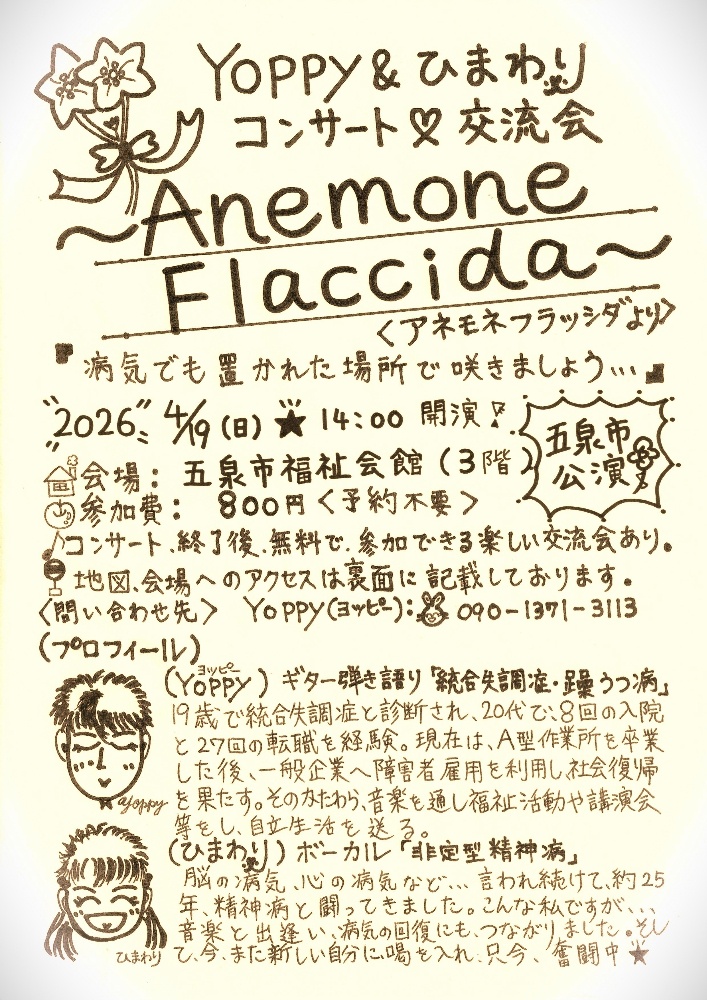 YOPPY & ひまわり
コンサート♡交流会
～Anemone
Flaccida～
＜アネモネフラッシダより＞
"病気でも置かれた場所で咲きましょう…"
"2026" 4/19（日）★ 14:00 開演♪
五泉市
公演
会場： 五泉市福祉会館（3階）
参加費： 800円＜予約不要＞
♪コンサート、終了後、無料で、参加できる楽しい交流会あり。
地図、会場へのアクセスは裏面に記載しております。
＜問い合わせ先＞ YOPPY(ヨッピー): 090-1371-3113
(プロフィール)
ヨッピー
(YOPPY) ギター弾き語り「統合失調症・躁うつ病」
19歳で統合失調症と診断され、20代で、8回の入院
と27回の転職を経験。現在は、A型作業所を卒業
した後、一般企業へ障害者雇用を利用し社会復帰
を果たす。そのかたわら、音楽を通し福祉活動や講演会
等をし、自立生活を送る。
yoppy
(ひまわり) ボーカル「非定型精神病」
脳の病気、心の病気など…言われ続けて、約25
年、精神病と闘ってきました。こんな私ですが…、
音楽と出逢い、病気の回復にも、つながりました。そし
て、今、また新しい自分に、喝を入れ、只今、奮闘中★
ひまわり